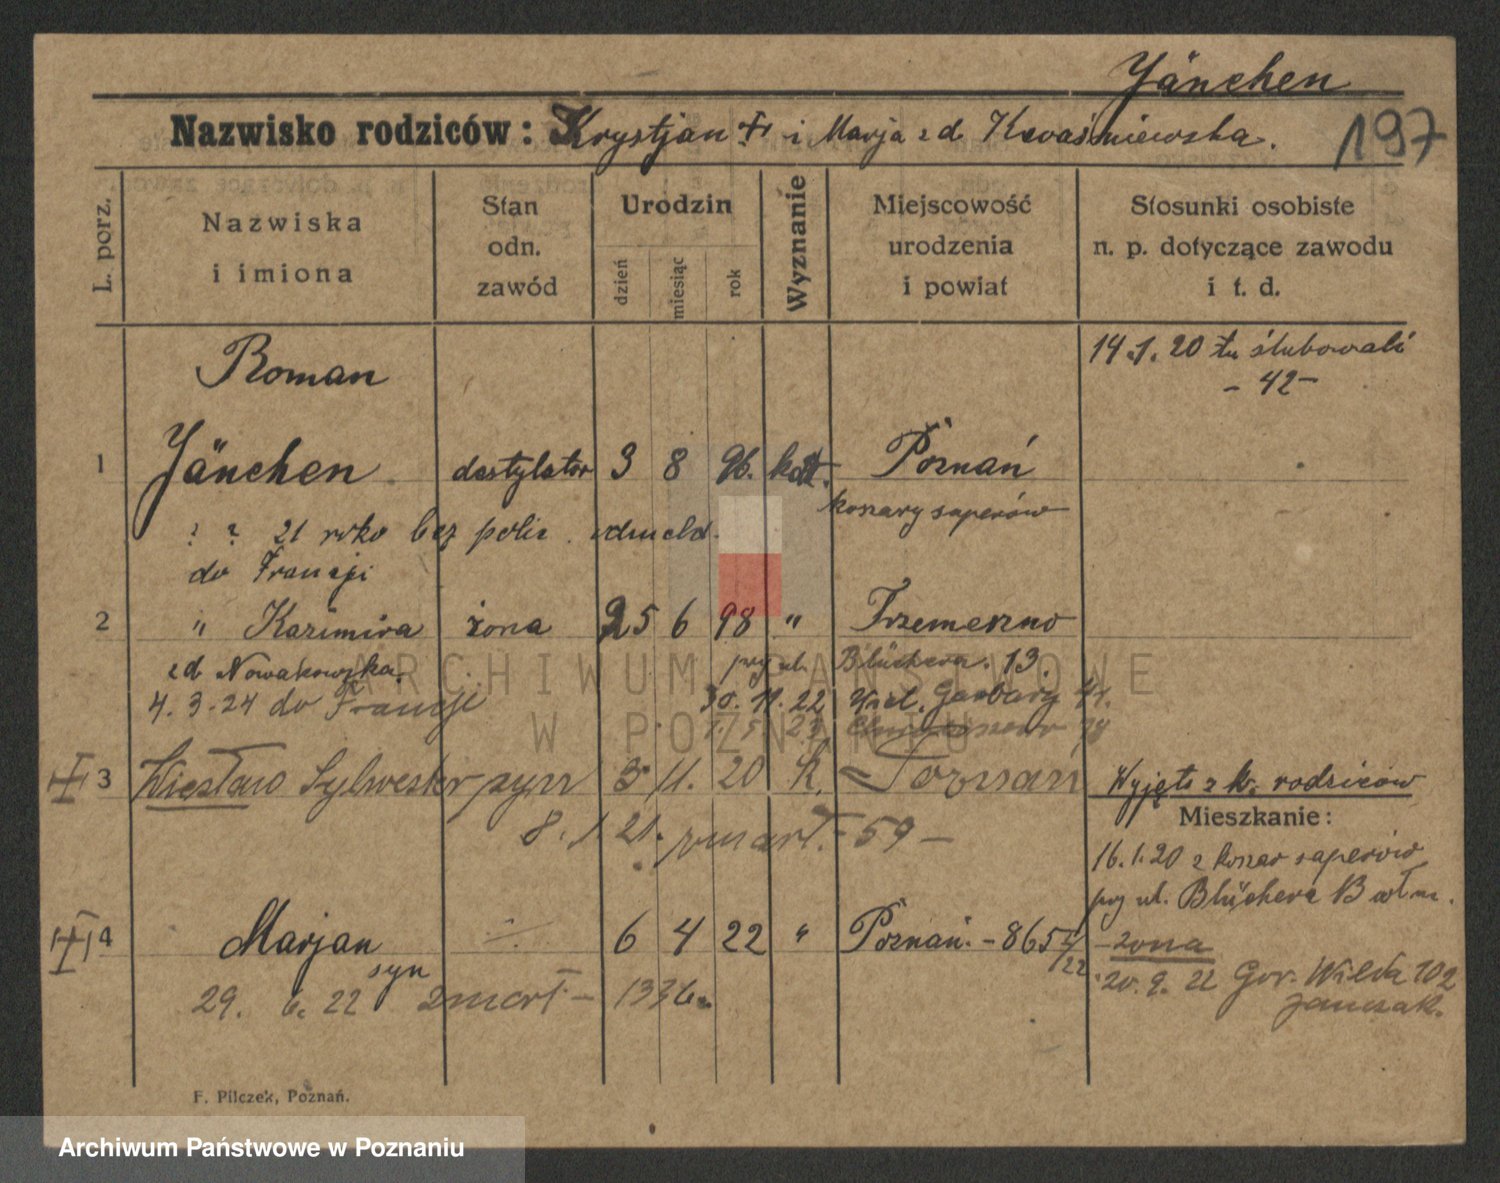 Jänchen
Nazwisko rodziców: Krystjan + i Marja zd. Kwaśniewska.
197
L. porz.
Nazwiska
i imiona
Stan
odn.
zawód
Urodzin
dzień
miesiąc
rok
Wyznanie
Miejscowość
urodzenia
i powiat
Stosunki osobiste
n. p. dotyczące zawodu
i t. d.
14.1.20 tu ślubowali
- 42 -
Roman
1 Jänchen destylator 3 8 96. kat. Poznań
koszary saperów
? ? 21 roko bez polic. odmeld.
do Francji
2 " Kazimira żona 25 6 98 " Trzemeszno
zd Nowakowska. przy ul. Blüchera. 13
4.3.24 do Francji 30.11.22 Garbary
3 Wiesław Sylwester syn 3 11. 20 k. Poznań
8.1.21. zmart. - 59 -
Wyjęto z k. rodziców
Mieszkanie:
16.1.20 z koszar saperów
przy ul. Blüchera 13
4 Marjan 6 4 22 " Poznań. - 865 4/22
syn
29. 6. 22 zmarł - 1336
- żona
20.9.22 Gór. Wilda 102
F. Pilczek, Poznań.
ARCHIWUM PAŃSTWOWE
W POZNANIU
Archiwum Państwowe w Poznaniu